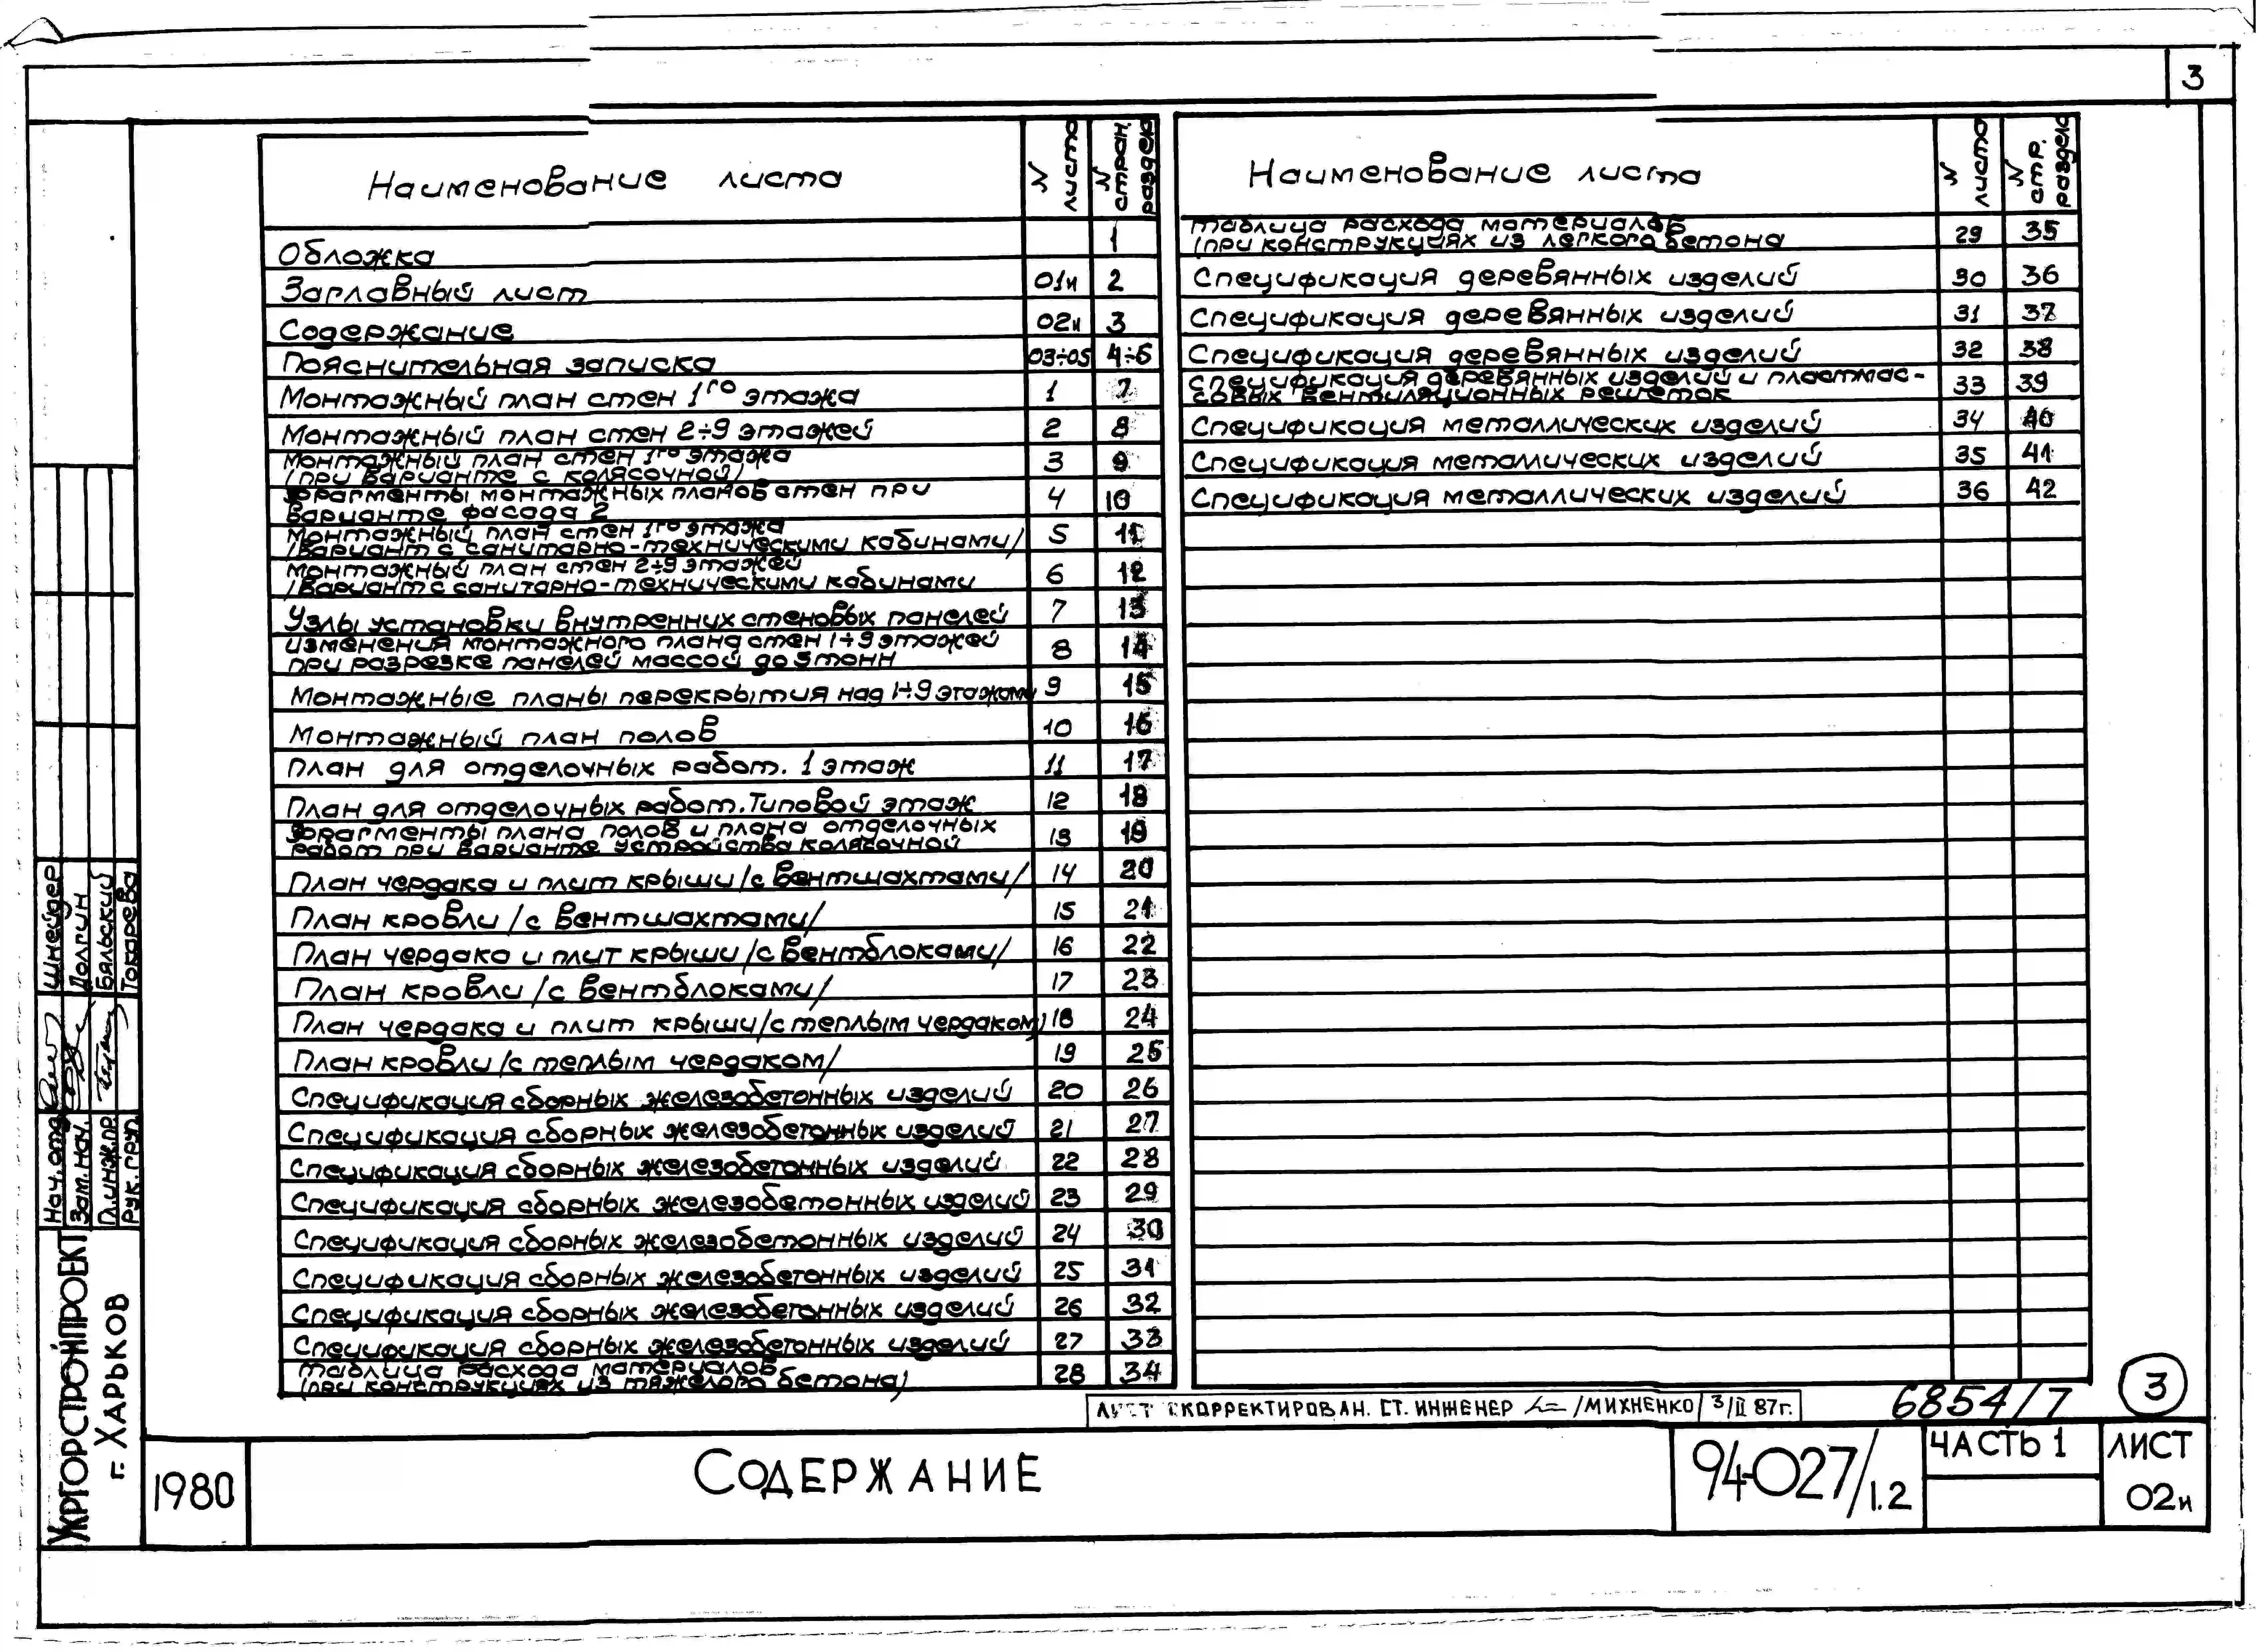 3
Наименование листа | N листа | N стран. раздела
Обложка | | 1
Заглавный лист | 01и | 2
Содержание | 02и | 3
Пояснительная записка | 03÷05 | 4÷6
Монтажный план стен 1го этажа | 1 | 7
Монтажный план стен 2÷9 этажей | 2 | 8
Монтажный план стен 1го этажа
(при варианте с колясочной) | 3 | 9
Фрагменты монтажных планов стен при
варианте фасада 2 | 4 | 10
Монтажный план стен 1го этажа
/Вариант с санитарно-техническими кабинами/ | 5 | 11
Монтажный план стен 2÷9 этажей
/Вариант с санитарно-техническими кабинами | 6 | 12
Узлы установки внутренних стеновых панелей | 7 | 13
Изменения монтажного плана стен 1÷9 этажей
при разрезке панелей массой до 5 тонн | 8 | 14
Монтажные планы перекрытия над 1÷9 этажами | 9 | 15
Монтажный план полов | 10 | 16
План для отделочных работ. 1 этаж | 11 | 17
План для отделочных работ. Типовой этаж | 12 | 18
Фрагменты плана полов и плана отделочных
работ при варианте устройства колясочной | 13 | 19
План чердака и плит крыши /с вентшахтами/ | 14 | 20
План кровли /с вентшахтами/ | 15 | 21
План чердака и плит крыши /с вентблоками/ | 16 | 22
План кровли /с вентблоками/ | 17 | 23
План чердака и плит крыши /с теплым чердаком/ | 18 | 24
План кровли /с теплым чердаком/ | 19 | 25
Спецификация сборных железобетонных изделий | 20 | 26
Спецификация сборных железобетонных изделий | 21 | 27
Спецификация сборных железобетонных изделий | 22 | 28
Спецификация сборных железобетонных изделий | 23 | 29
Спецификация сборных железобетонных изделий | 24 | 30
Спецификация сборных железобетонных изделий | 25 | 31
Спецификация сборных железобетонных изделий | 26 | 32
Спецификация сборных железобетонных изделий | 27 | 33
Таблица расхода материалов
(при конструкциях из тяжелого бетона) | 28 | 34
Наименование листа | N листа | N стр. раздела
Таблица расхода материалов
(при конструкциях из легкого бетона | 29 | 35
Спецификация деревянных изделий | 30 | 36
Спецификация деревянных изделий | 31 | 37
Спецификация деревянных изделий | 32 | 38
Спецификация деревянных изделий и пластмас-
совых вентиляционных решеток | 33 | 39
Спецификация металлических изделий | 34 | 40
Спецификация металлических изделий | 35 | 41
Спецификация металлических изделий | 36 | 42
Нач. отд. Шнейдер
Зам. нач. Долгин
Гл. инж. пр. Бяльский
Рук. груп. Токарева
УКРГОРСТРОЙПРОЕКТ
г. ХАРЬКОВ
ЛИСТ СКОРРЕКТИРОВАН. СТ. ИНЖЕНЕР /МИХНЕНКО 3/II 87г.
6854/7
3
1980
СОДЕРЖАНИЕ
94-027/1.2
ЧАСТЬ 1
ЛИСТ
02и